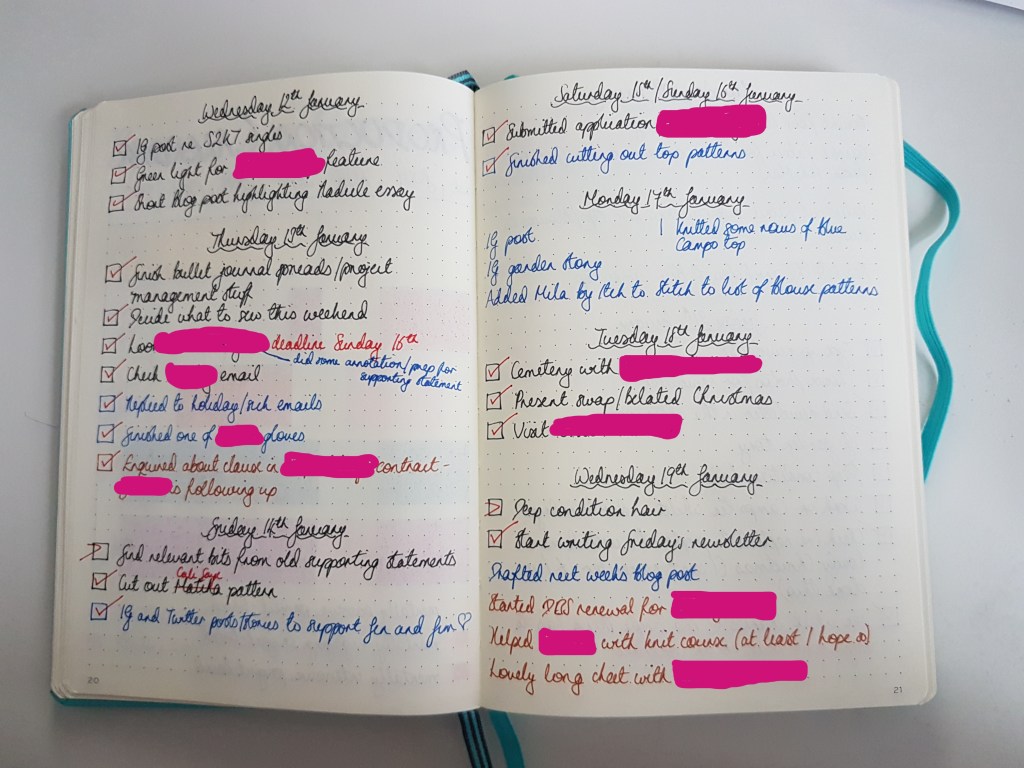 Wednesday 12th January
IG post re S2KT singles
Green light for feature
Short blog post highlighting essay
Thursday 13th January
Finish bullet journal spreads/project
management stuff
Decide what to sew this weekend
deadline Sunday 16th
did some annotation/prep for
supporting statement
Check email
Replied to holiday/sick emails
Finished one of gloves
Enquired about clause in contract -
is following up
Friday 14th January
Find relevant bits from old supporting statements
Cali Faye
Cut out pattern
IG and Twitter posts/stories to support Fen and Fim ♡
20
Saturday 15th/Sunday 16th January
Submitted application
Finished cutting out top patterns
Monday 17th January
IG post
1 Knitted some rows of blue
Campo top
IG garden story
Added Mila by Itch to Stitch to list of blouse patterns
Tuesday 18th January
Cemetery with
Present swap/belated Christmas
Visit
Wednesday 19th January
Deep condition hair
Start writing Friday's newsletter
Drafted next week's blog post
Started DBS renewal for
Helped with knit course (at least I hope so)
Lovely long chat with
21